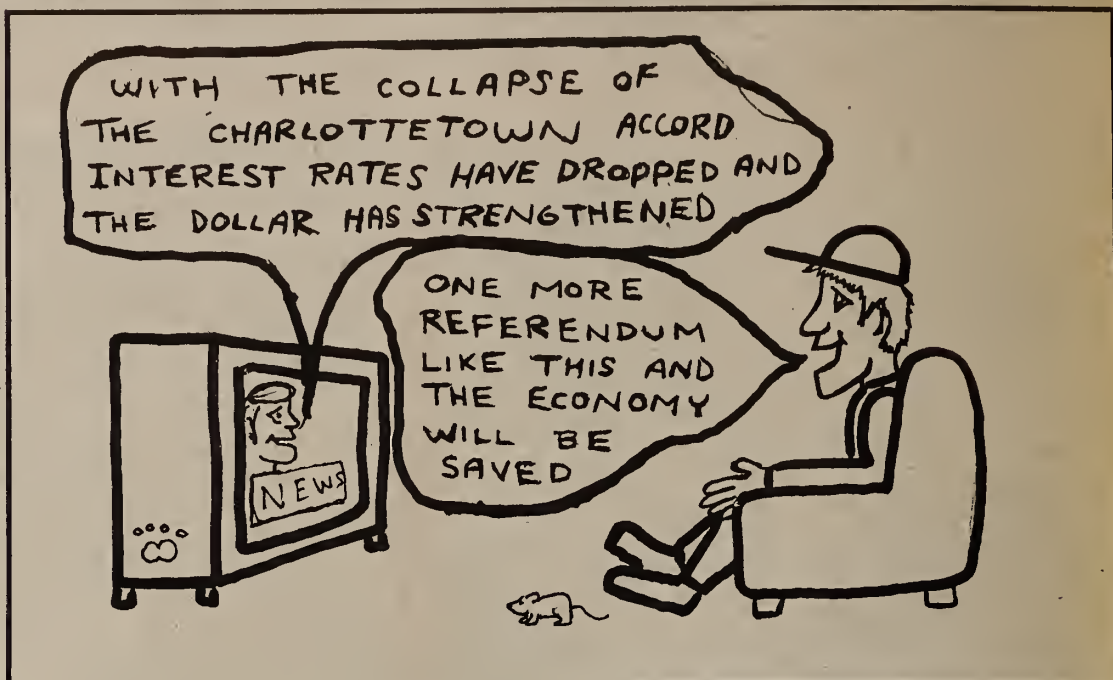 WITH THE COLLAPSE OF
THE CHARLOTTETOWN ACCORD
INTEREST RATES HAVE DROPPED AND
THE DOLLAR HAS STRENGTHENED
ONE MORE
REFERENDUM
LIKE THIS AND
THE ECONOMY
WILL BE
SAVED
NEWS